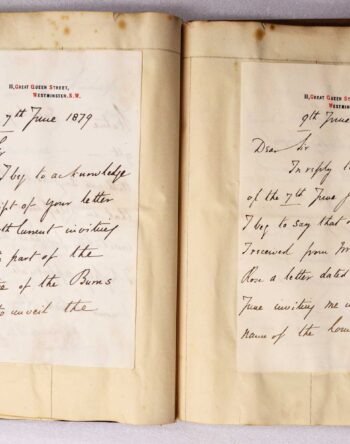 11, GREAT QUEEN STREET,
WESTMINSTER. S.W.
7th June 1879
I beg to acknowledge
of your letter
inviting
part of the
of the Burns
to unveil the
11, GREAT QUEEN
WESTMINSTER
9th June
Dear Sir
In reply to
of the 7th June
I beg to say that
I received from
Rose a letter dated
June inviting me
name of the